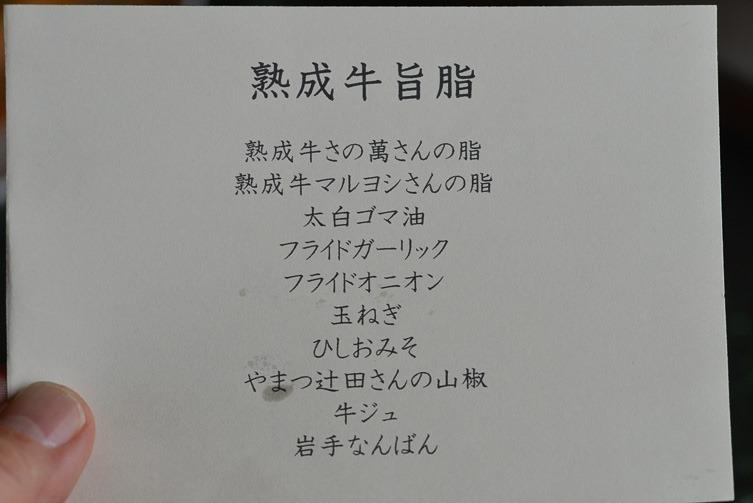 熟成牛旨脂
熟成牛さの萬さんの脂
熟成牛マルヨシさんの脂
太白ゴマ油
フライドガーリック
フライドオニオン
玉ねぎ
ひしおみそ
やまつ辻田さんの山椒
牛ジュ
岩手なんばん